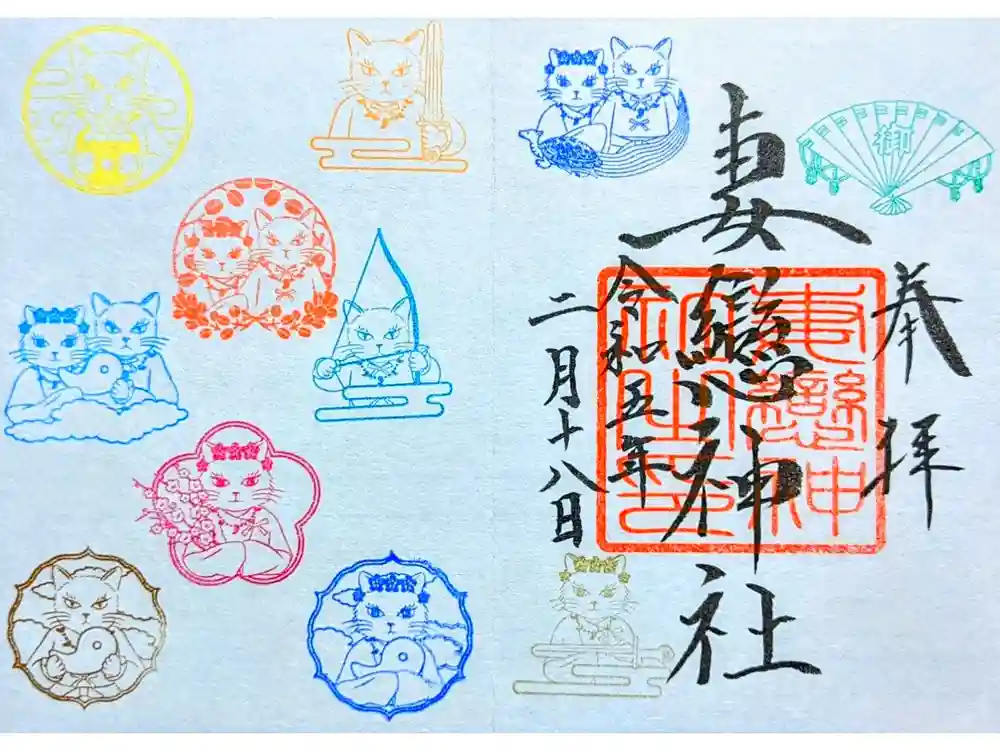 奉拝
御
妻戀神社
妻戀神社之印
令和五年
二月十八日